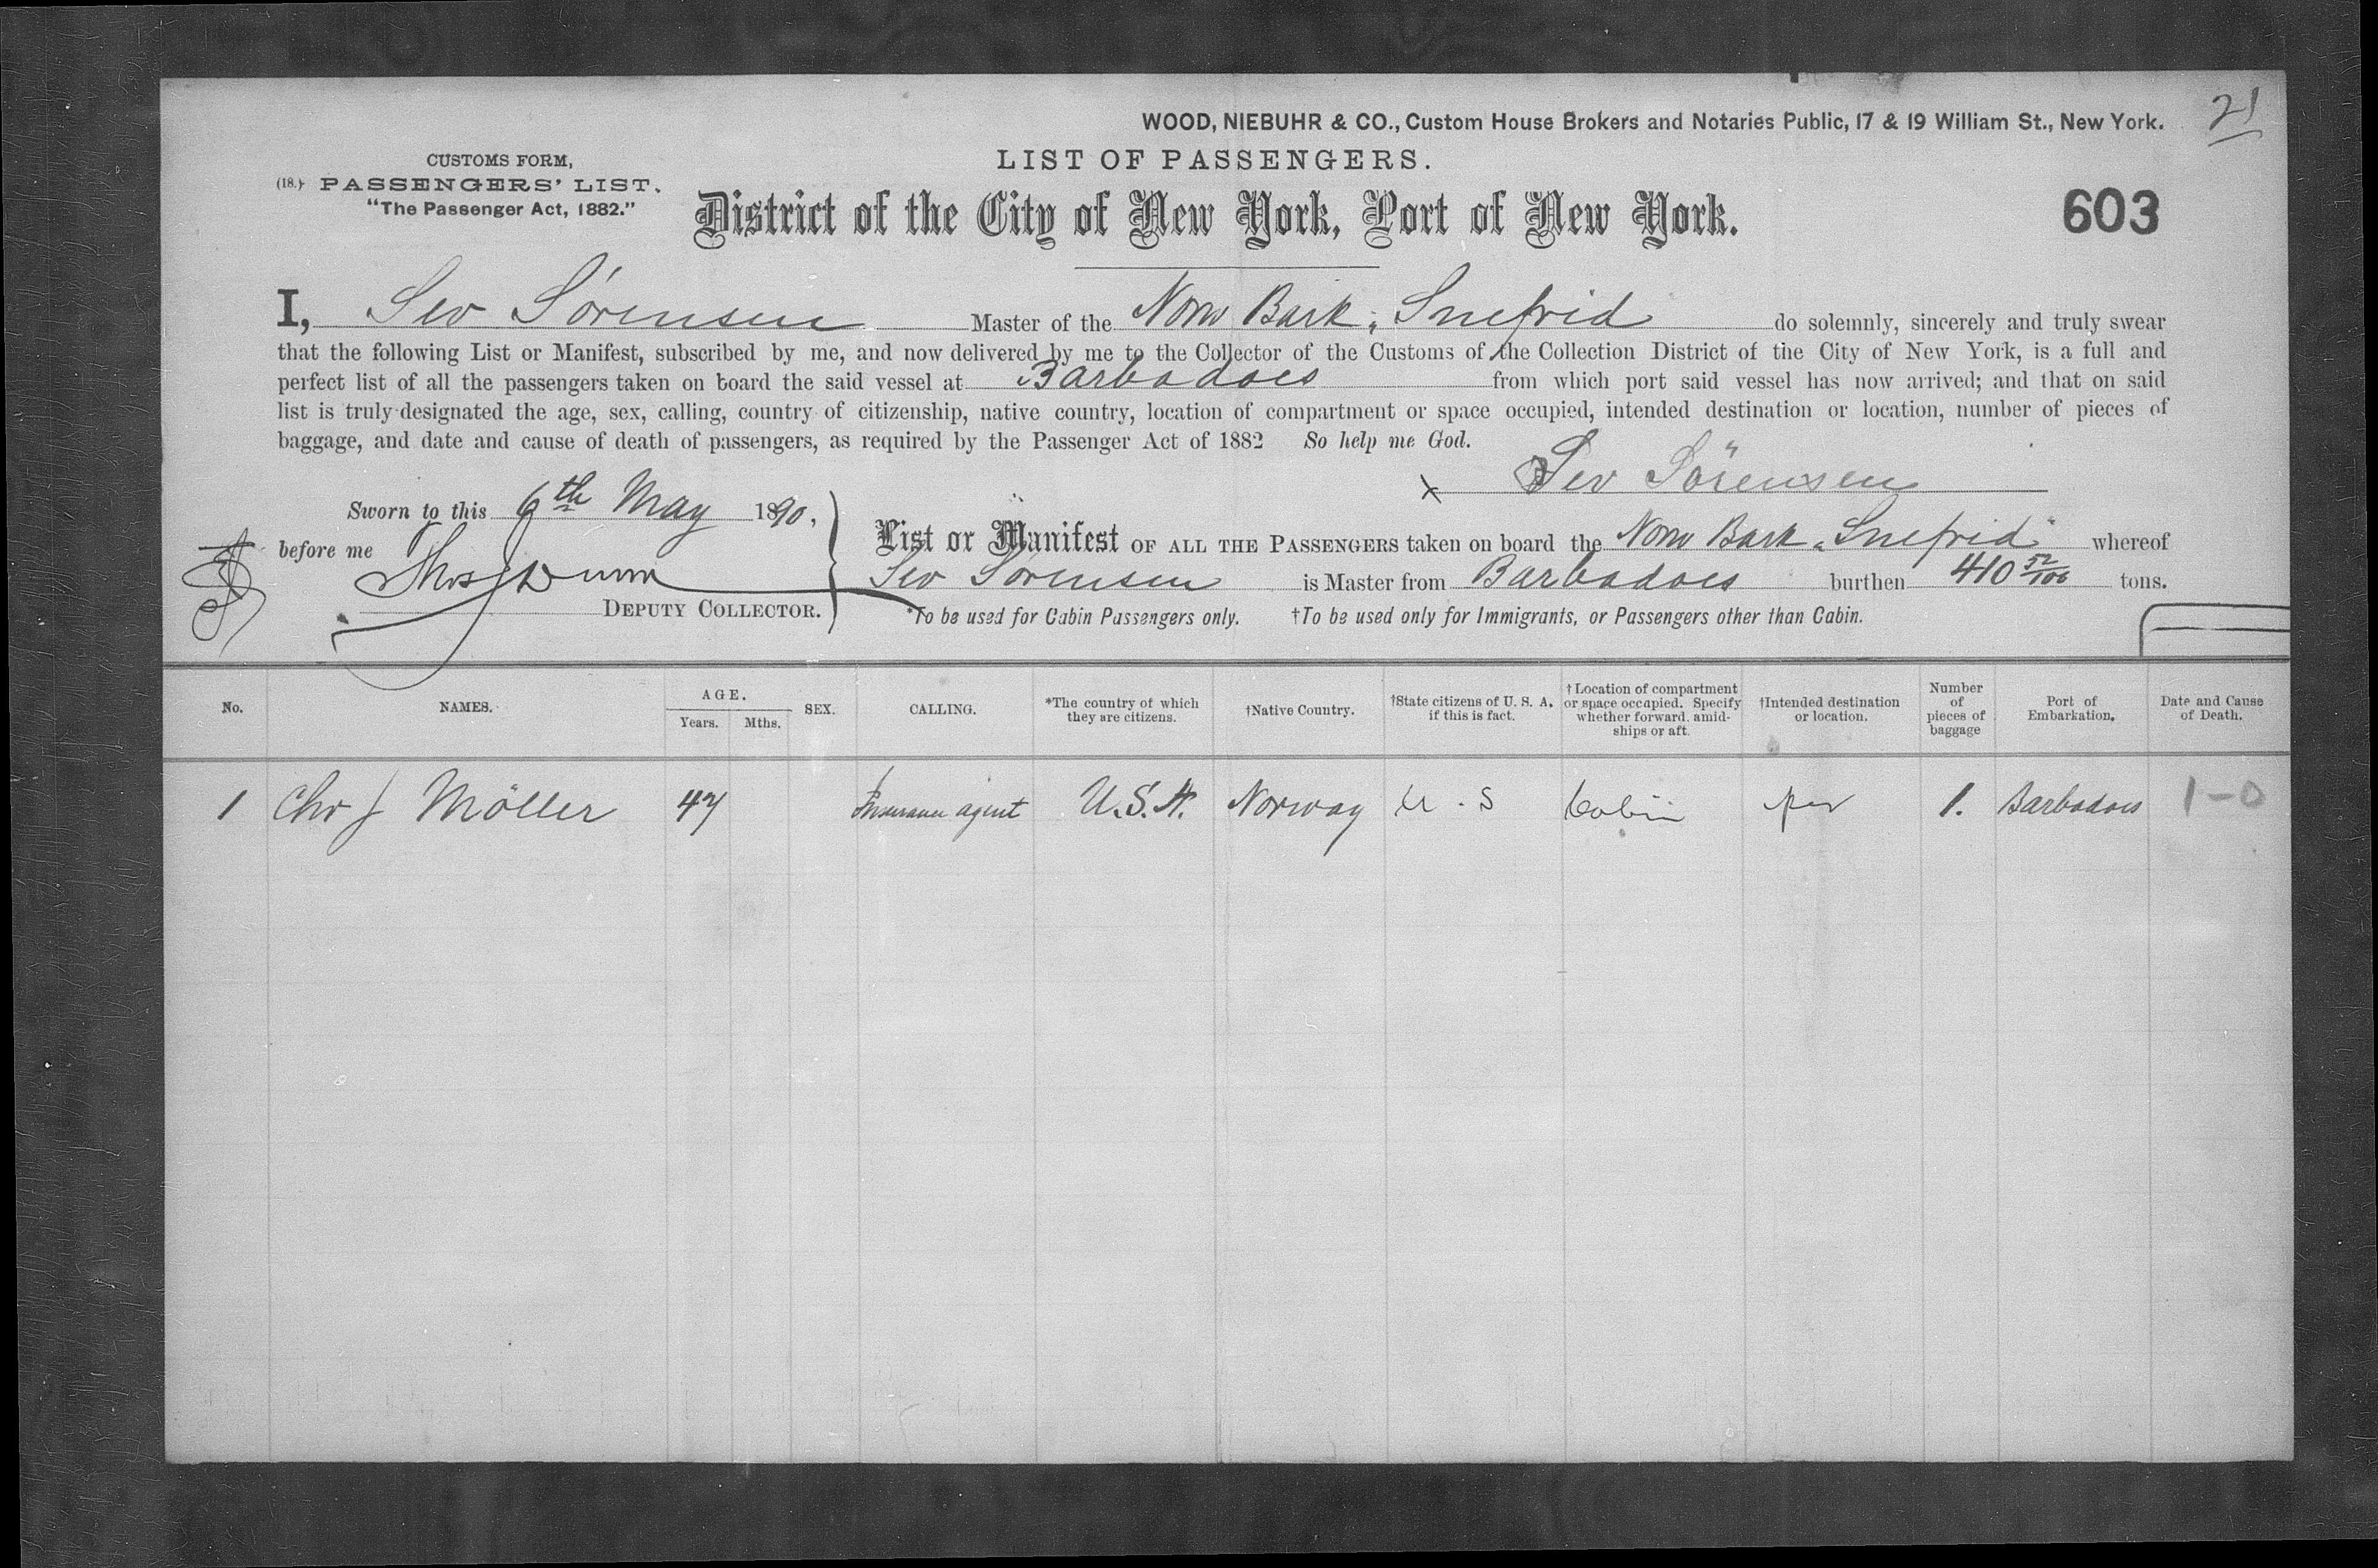 WOOD, NIEBUHR & CO., Custom House Brokers and Notaries Public, 17 & 19 William St., New York.
21
CUSTOMS FORM,
(18.) PASSENGERS' LIST.
"The Passenger Act, 1882."
LIST OF PASSENGERS.
District of the City of New York, Port of New York.
603
I, Sev Sörensen Master of the Norw Bark "Snefrid do solemnly, sincerely and truly swear
that the following List or Manifest, subscribed by me, and now delivered by me to the Collector of the Customs of the Collection District of the City of New York, is a full and
perfect list of all the passengers taken on board the said vessel at Barbadoes from which port said vessel has now arrived; and that on said
list is truly designated the age, sex, calling, country of citizenship, native country, location of compartment or space occupied, intended destination or location, number of pieces of
baggage, and date and cause of death of passengers, as required by the Passenger Act of 1882 So help me God.
x Sev Sörensen
Sworn to this 6th May 1890,
before me Thos J Dunn
DEPUTY COLLECTOR.
List or Manifest OF ALL THE PASSENGERS taken on board the Norw Bark "Snefrid" whereof
Sev Sörensen is Master from Barbadoes burthen 410 52/100 tons.
*To be used for Cabin Passengers only. †To be used only for Immigrants, or Passengers other than Cabin.
No. NAMES. AGE. Years. Mths. SEX. CALLING. *The country of which they are citizens. †Native Country. †State citizens of U. S. A. if this is fact. †Location of compartment or space occupied. Specify whether forward, amidships or aft. †Intended destination or location. Number of pieces of baggage Port of Embarkation. Date and Cause of Death.
1 Chr J Möller 47 Insurance agent U.S.A. Norway U.S Cabin 1. Barbadoes 1-0